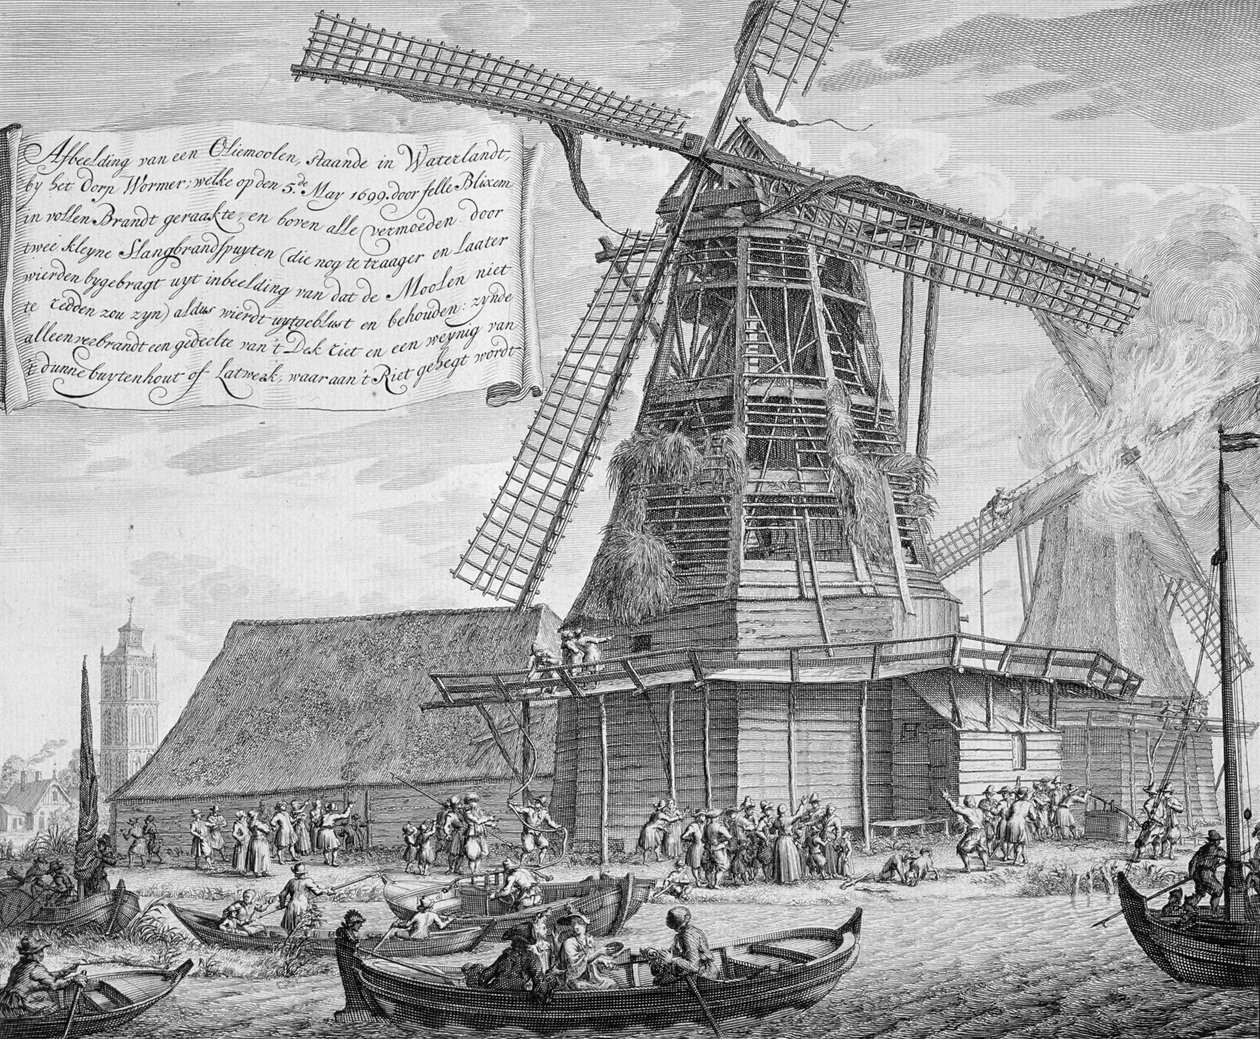 Afbeelding van een Oliemoolen, staande in Waterlandt,
by het dorp Wormer; welke op den 5.de May 1699. door felle Blixem
in vollen Brandt geraakte, en boven alle vermoeden door
twee kleyne Slangbrandspuyten (die nog te traager en laater
wierden bygebragt uyt inbeelding van dat de Moolen niet
te redden zou zyn) aldus wierdt uytgeblust en behouden: zynde
alleen verbrandt een gedeelte van 't Dak riet en een weynig van
't dunne buytenhout of Latwerk, waar aan 't Riet gehegt wordt